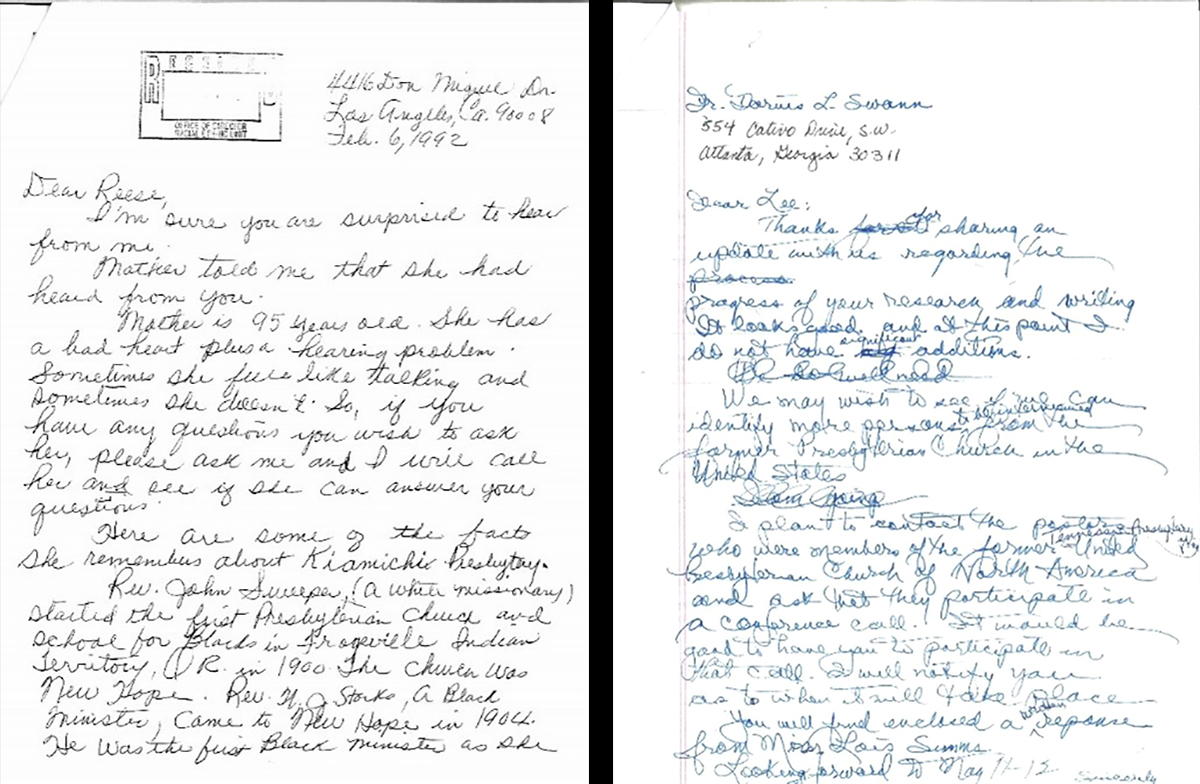 RECEIVED
OFFICE OF DIRECTOR
4416 Don Miguel Dr.
Los Angeles, Ca. 90008
Feb. 6, 1992
Dear Reese,
I'm sure you are surprised to hear
from me.
Mother told me that she had
heard from you.
Mother is 95 years old. She has
a bad heart plus a hearing problem.
Sometimes she feels like talking and
sometimes she doesn't. So, if you
have any questions you wish to ask
her, please ask me and I will call
her and see if she can answer your
questions
Here are some of the facts
she remembers about Kiamichi Presbytay.
Rev. John Sweepa, (a white missionary)
started the first Presbyterian Church and
school for Blacks in Frogville Indian
Territory, O R. in 1900. The Church was
New Hope. Rev. H. J. Starks, A Black
minister, came to New Hope in 1904.
He was the first Black minister as she
Dr. Darius L. Swann
554 Cativo Drive, S.W.
Atlanta, Georgia 30311
Dear Lee:
Thanks for sharing an
update with us regarding the
process
progress of your research and writing
It looks good and at this point I
do not have significant additions.
We may wish to see if we can
identify more persons, to be interviewed from the
former Presbyterian Church in the
United States
I plan to contact the pastors
who were members of the former United
Presbyterian Church of North America
and ask that they participate in
a conference call. It would be
good to have you to participate in
that call. I will notify you
as to when it will take place
You will find enclosed a written reponse
from Miss Lois Simms.
Looking forward to May 11-13.
Sincerely